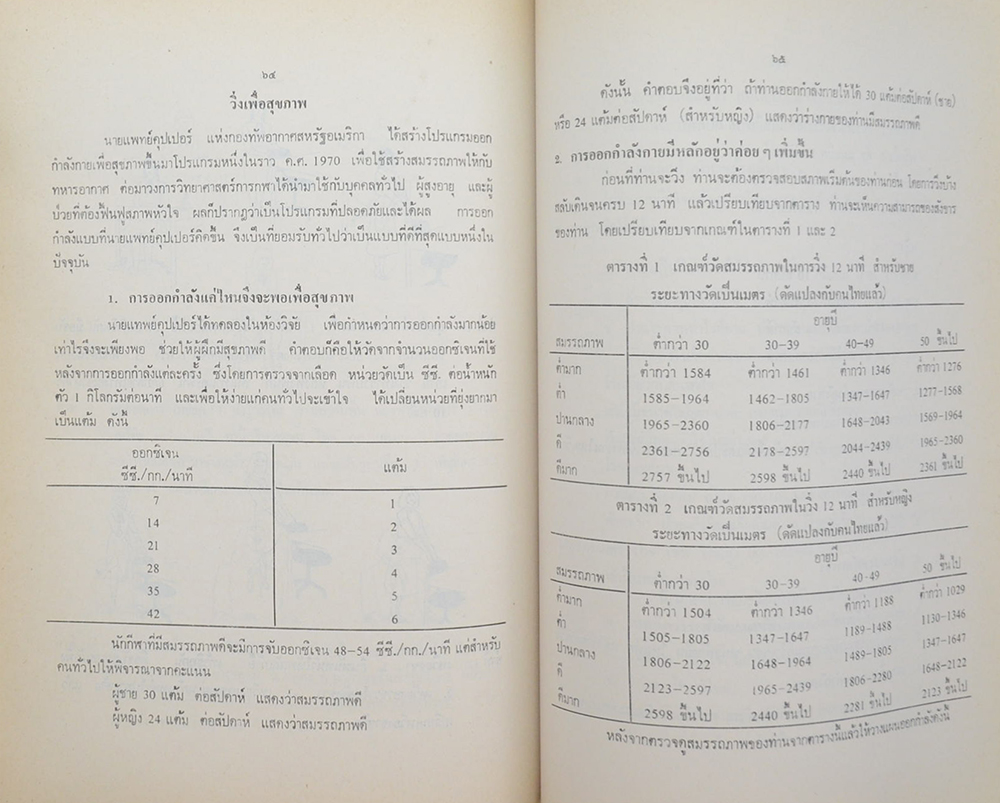 ๖๔
วิ่งเพื่อสุขภาพ
นายแพทย์คุปเปอร์ แห่งกองทัพอากาศสหรัฐอเมริกา ได้สร้างโปรแกรมออก
กำลังกายเพื่อสุขภาพขึ้นมาโปรแกรมหนึ่งในราว ค.ศ. 1970 เพื่อใช้สร้างสมรรถภาพให้กับ
ทหารอากาศ ต่อมาวงการวิทยาศาสตร์การกีฬาได้นำมาใช้กับบุคคลทั่วไป ผู้สูงอายุ และผู้
ป่วยที่ต้องฟื้นฟูสภาพหัวใจ ผลก็ปรากฏว่าเป็นโปรแกรมที่ปลอดภัยและได้ผล การออก
กำลังแบบที่นายแพทย์คุปเปอร์คิดขึ้น จึงเป็นที่ยอมรับทั่วไปว่าเป็นแบบที่ดีที่สุดแบบหนึ่งใน
ปัจจุบัน
1. การออกกำลังแค่ไหนจึงจะพอเพื่อสุขภาพ
นายแทพย์คุปเปอร์ได้ทดลองในห้องวิจัย เพื่อกำหนดว่าการออกกำลังมากน้อย
เท่าไรจึงจะเพียงพอ ช่วยให้ผู้ฝึกมีสุขภาพดี คำตอบก็คือให้วัดจากจำนวนออกซิเจนที่ใช้
หลังจากการออกกำลังแต่ละครั้ง ซึ่งโดยการตรวจจากเลือด หน่วยวัดเป็น ซีซี. ต่อน้ำหนัก
ตัว 1 กิโลกรัมต่อนาที และเพื่อให้ง่ายแก่คนทั่วไปจะเข้าใจ ได้เปลี่ยนหน่วยที่ยุ่งยากมา
เป็นแต้ม ดังนี้
ออกซิเจน
ซีซี./กก./นาที แต้ม
7 1
14 2
21 3
28 4
35 5
42 6
นักกีฬาที่มีสมรรถภาพดีจะมีการจับออกซิเจน 48-54 ซีซี./กก./นาที แต่สำหรับ
คนทั่วไปให้พิจารณาจากคะแนน
ผู้ชาย 30 แต้ม ต่อสัปดาห์ แสดงว่าสมรรถภาพดี
ผู้หญิง 24 แต้ม ต่อสัปดาห์ แสดงว่าสมรรถภาพดี
๖๕
ดังนั้น คำตอบจึงอยู่ที่ว่า ถ้าท่านออกกำลังกายให้ได้ 30 แต้มต่อสัปดาห์ (ชาย)
หรือ 24 แต้มต่อสัปดาห์ (สำหรับหญิง) แสดงว่าร่างกายของท่านมีสมรรถภาพดี
2. การออกกำลังกายมีหลักอยู่ว่าค่อย ๆ เพิ่มขึ้น
ก่อนที่ท่านจะวิ่ง ท่านจะต้องตรวจสอบสภาพเริ่มต้นของท่านก่อน โดยการวิ่งบ้าง
สลับเดินจนครบ 12 นาที แล้วเปรียบเทียบจากตาราง ท่านจะเห็นความสามารถของสังขาร
ของท่าน โดยเปรียบเทียบจากเกณฑ์ในตารางที่ 1 และ 2
ตารางที่ 1 เกณฑ์วัดสมรรถภาพในการวิ่ง 12 นาที สำหรับชาย
ระยะทางวัดเป็นเมตร (ดัดแปลงกับคนไทยแล้ว)
อายุปี
สมรรถภาพ ต่ำกว่า 30 30-39 40-49 50 ขึ้นไป
ต่ำมาก ต่ำกว่า 1584 ต่ำกว่า 1461 ต่ำกว่า 1346 ต่ำกว่า 1276
ต่ำ 1585-1964 1462-1805 1347-1647 1277-1568
ปานกลาง 1965-2360 1806-2177 1648-2043 1569-1964
ดี 2361-2756 2178-2597 2044-2439 1965-2360
ดีมาก 2757 ขึ้นไป 2598 ขึ้นไป 2440 ขึ้นไป 2361 ขึ้นไป
ตารางที่ 2 เกณฑ์วัดสมรรถภาพในวิ่ง 12 นาที สำหรับหญิง
ระยะทางวัดเป็นเมตร (ดัดแปลงกับคนไทยแล้ว)
อายุปี
สมรรถภาพ ต่ำกว่า 30 30-39 40-49 50 ขึ้นไป
ต่ำมาก ต่ำกว่า 1504 ต่ำกว่า 1346 ต่ำกว่า 1188 ต่ำกว่า 1029
ต่ำ 1505-1805 1347-1647 1189-1488 1130-1346
ปานกลาง 1806-2122 1648-1964 1489-1805 1347-1647
ดี 2123-2597 1965-2439 1806-2280 1648-2122
ดีมาก 2598 ขึ้นไป 2440 ขึ้นไป 2281 ขึ้นไป 2123 ขึ้นไป
หลังจากตรวจดูสมรรถภาพของท่านจากตารางนี้แล้วให้วางแผนออกกำลังดังนี้